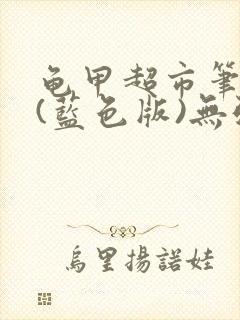 龟甲超市筆
(藍色版)無
烏里揚諾娃